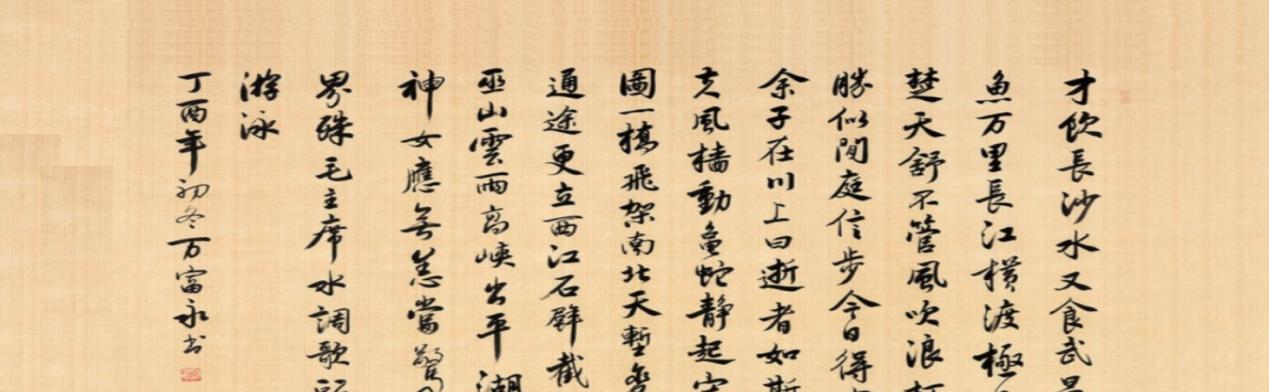 才飲長沙水又食武
魚万里長江横渡極
楚天舒不管風吹浪
勝似閒庭信步今日得
余子在川上曰逝者如斯
風樯動龜蛇静起
圖一橋飛架南北天塹
通途更立西江石壁截
巫山雲雨高峡出平湖
神女應無恙當驚
界殊毛主席水調歌
游泳
丁酉年初冬万富永书